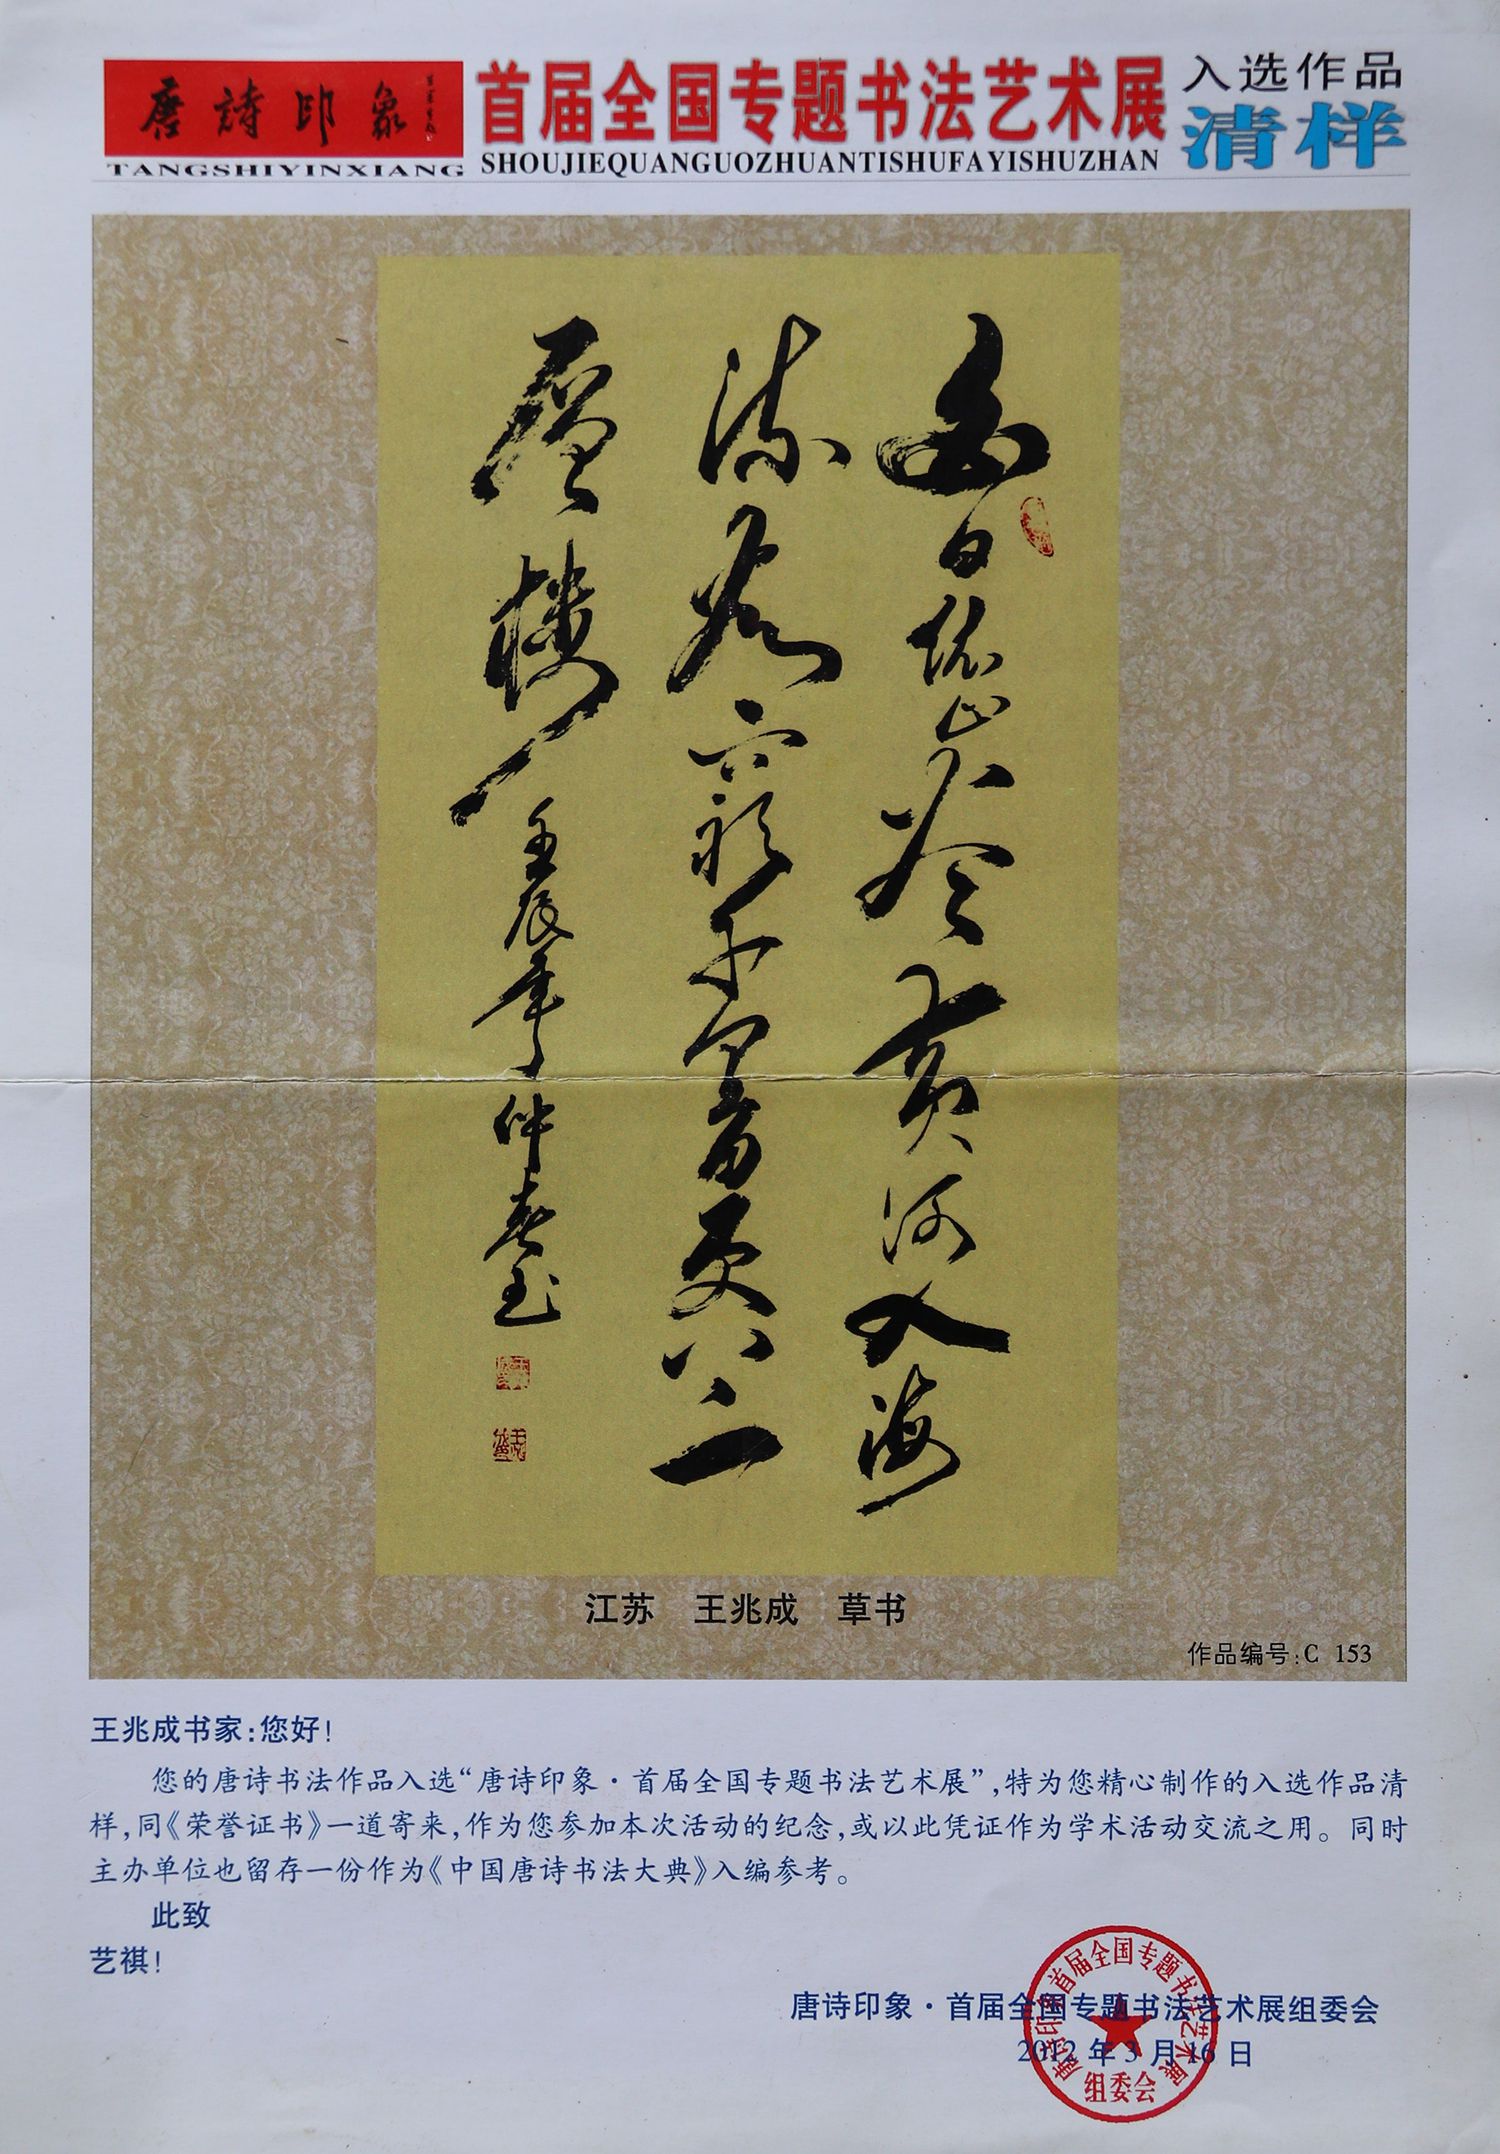 唐詩印象
TANGSHIYINXIANG
首届全国专题书法艺术展
SHOUJIEQUANGUOZHUANTISHUFAYISHUZHAN
入选作品
清样
白日依山尽黄河入海
流欲穷千里目更上一
层楼
壬辰年仲春书
江苏 王兆成 草书
作品编号:C 153
王兆成书家:您好!
您的唐诗书法作品入选“唐诗印象·首届全国专题书法艺术展”,特为您精心制作的入选作品清
样,同《荣誉证书》一道寄来,作为您参加本次活动的纪念,或以此凭证作为学术活动交流之用。同时
主办单位也留存一份作为《中国唐诗书法大典》入编参考。
此致
艺祺!
唐诗印象·首届全国专题书法艺术展组委会
2012年3月16日
唐诗印象首届全国专题书法艺术展
组委会